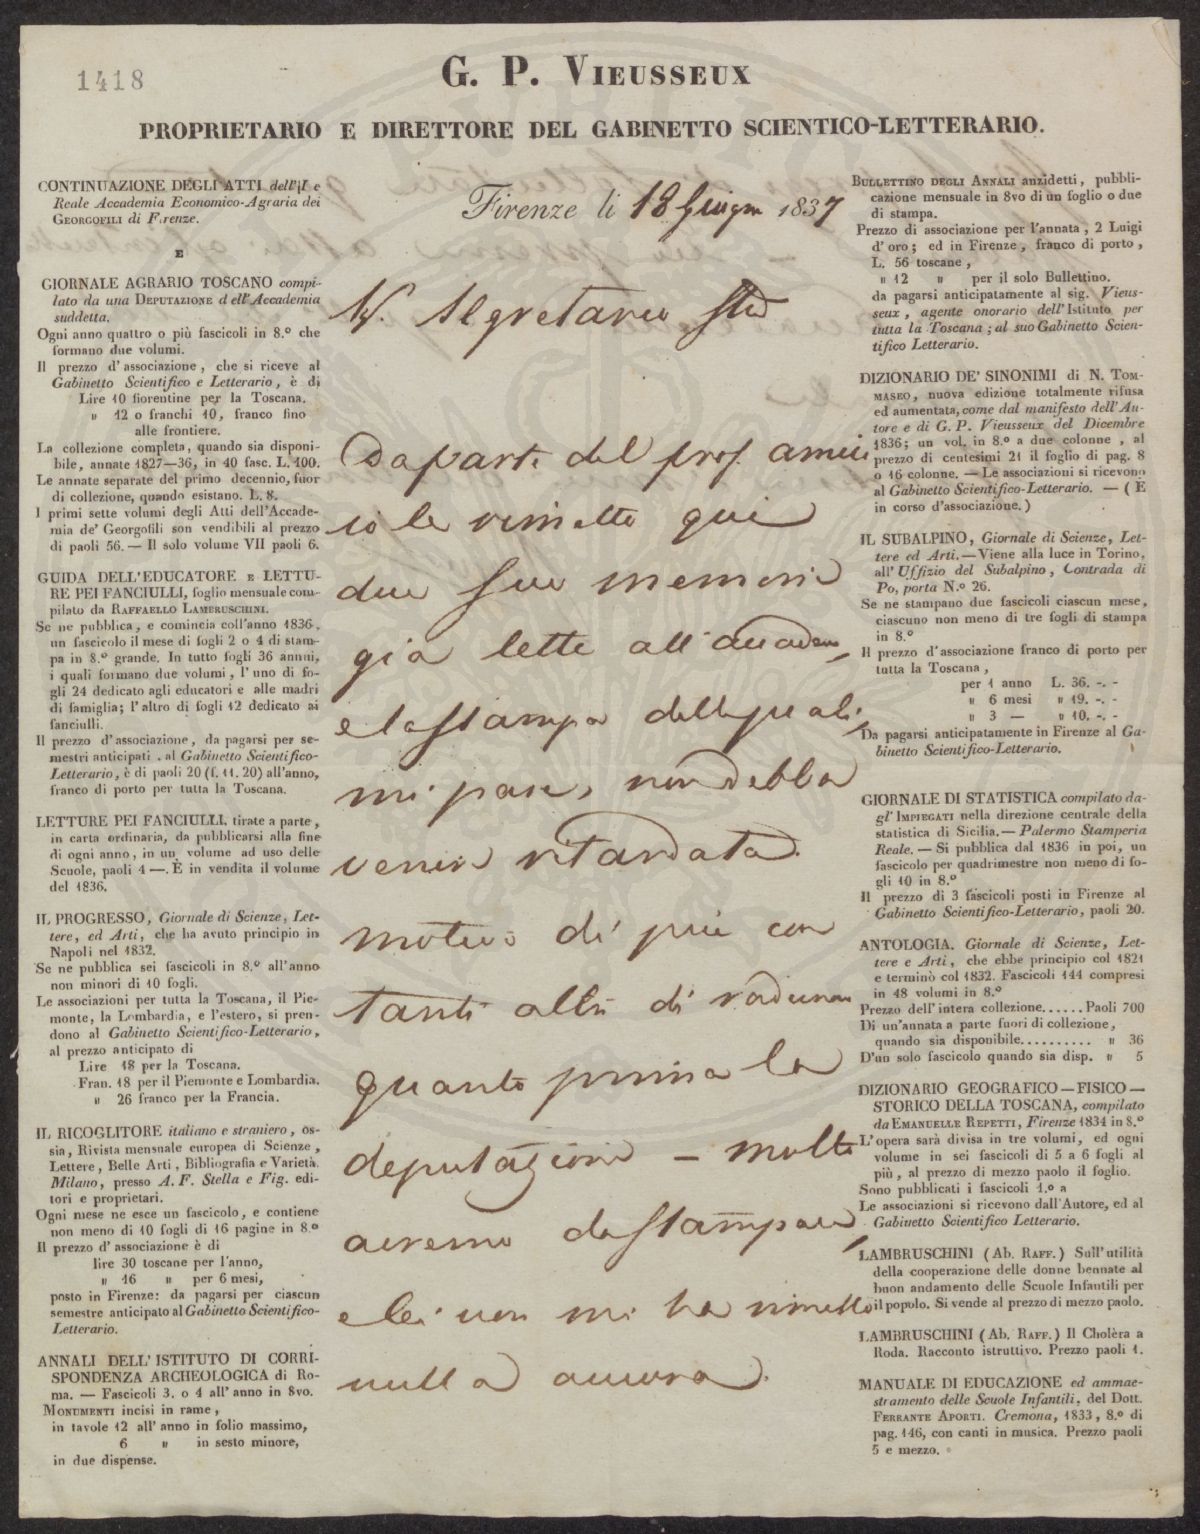 1418
G. P. VIEUSSEUX
PROPRIETARIO E DIRETTORE DEL GABINETTO SCIENTICO-LETTERARIO.
CONTINUAZIONE DEGLI ATTI dell'I e
Reale Accademia Economico-Agraria dei
GEORGOFILI di Firenze.
E
GIORNALE AGRARIO TOSCANO compi-
lato da una DEPUTAZIONE dell'Accademia
suddetta.
Ogni anno quattro o più fascicoli in 8.º che
formano due volumi.
Il prezzo d'associazione, che si riceve al
Gabinetto Scientifico e Letterario, è di
Lire 10 fiorentine per la Toscana.
" 12 o franchi 10, franco fino
alle frontiere.
La collezione completa, quando sia disponi-
bile, annate 1827—36, in 40 fasc. L. 100.
Le annate separate del primo decennio, fuor
di collezione, quando esistano. L. 8.
I primi sette volumi degli Atti dell'Accade-
mia de' Georgofili son vendibili al prezzo
di paoli 56. — Il solo volume VII paoli 6.
GUIDA DELL'EDUCATORE E LETTU-
RE PEI FANCIULLI, foglio mensuale com-
pilato da RAFFAELLO LAMBRUSCHINI.
Se ne pubblica, e comincia coll'anno 1836,
un fascicolo il mese di fogli 2 o 4 di stam-
pa in 8.º grande. In tutto fogli 36 annui,
i quali formano due volumi, l'uno di fo-
gli 24 dedicato agli educatori e alle madri
di famiglia; l'altro di fogli 12 dedicato ai
fanciulli.
Il prezzo d'associazione, da pagarsi per se-
mestri anticipati, al Gabinetto Scientifico-
Letterario, è di paoli 20 (f. 11. 20) all'anno,
franco di porto per tutta la Toscana.
LETTURE PEI FANCIULLI, tirate a parte,
in carta ordinaria, da pubblicarsi alla fine
di ogni anno, in un volume ad uso delle
Scuole, paoli 4 —. È in vendita il volume
del 1836.
IL PROGRESSO, Giornale di Scienze, Let-
tere, ed Arti, che ha avuto principio in
Napoli nel 1832.
Se ne pubblica sei fascicoli in 8.º all'anno
non minori di 10 fogli.
Le associazioni per tutta la Toscana, il Pie-
monte, la Lombardia, e l'estero, si pren-
dono al Gabinetto Scientifico-Letterario,
al prezzo anticipato di
Lire 18 per la Toscana.
Fran. 18 per il Piemonte e Lombardia.
" 26 franco per la Francia.
IL RICOGLITORE italiano e straniero, os-
sia, Rivista mensuale europea di Scienze,
Lettere, Belle Arti, Bibliografia e Varietà.
Milano, presso A. F. Stella e Fig. edi-
tori e proprietari.
Ogni mese ne esce un fascicolo, e contiene
non meno di 10 fogli di 16 pagine in 8.º
Il prezzo d'associazione è di
lire 30 toscane per l'anno,
" 16 " per 6 mesi,
posto in Firenze: da pagarsi per ciascun
semestre anticipato al Gabinetto Scientifico-
Letterario.
ANNALI DELL'ISTITUTO DI CORRI-
SPONDENZA ARCHEOLOGICA di Ro-
ma. — Fascicoli 3. o 4 all'anno in 8vo.
MONUMENTI incisi in rame,
in tavole 12 all'anno in folio massimo,
6 " in sesto minore,
in due dispense.
Firenze li 18 Giugno 1837
Sr. Segretario Stmo
Da parte del prof. Amici
io le rimetto qui
due sue memorie
già lette all'accadem,
e la stampa delle quali,
mi pare, non debba
venir ritardata.
motivo di più con
tanti altri di radunar
quanto prima la
deputazione — molto
avremo da stampare,
e lei non mi ha rimesso
nulla ancora.
BULLETTINO DEGLI ANNALI anzidetti, pubbli-
cazione mensuale in 8vo di un foglio o due
di stampa.
Prezzo di associazione per l'annata, 2 Luigi
d'oro; ed in Firenze, franco di porto,
L. 56 toscane,
" 12 " per il solo Bullettino.
da pagarsi anticipatamente al sig. Vieus-
seux, agente onorario dell'Istituto per
tutta la Toscana; al suo Gabinetto Scien-
tifico Letterario.
DIZIONARIO DE' SINONIMI di N. TOM-
MASEO, nuova edizione totalmente rifusa
ed aumentata, come dal manifesto dell'Au-
tore e di G. P. Vieusseux del Dicembre
1836; un vol. in 8.º a due colonne, al
prezzo di centesimi 21 il foglio di pag. 8
o 16 colonne. — Le associazioni si ricevono
al Gabinetto Scientifico-Letterario. — (È
in corso d'associazione.)
IL SUBALPINO, Giornale di Scienze, Let-
tere ed Arti. — Viene alla luce in Torino,
all'Uffizio del Subalpino, Contrada di
Po, porta N.º 26.
Se ne stampano due fascicoli ciascun mese,
ciascuno non meno di tre fogli di stampa
in 8.º
Il prezzo d'associazione franco di porto per
tutta la Toscana,
per 1 anno L. 36. -. -
" 6 mesi " 19. -. -
" 3 — " 10. -. -
Da pagarsi anticipatamente in Firenze al Ga-
binetto Scientifico-Letterario.
GIORNALE DI STATISTICA compilato da-
gl' IMPIEGATI nella direzione centrale della
statistica di Sicilia. — Palermo Stamperia
Reale. — Si pubblica dal 1836 in poi, un
fascicolo per quadrimestre non meno di fo-
gli 10 in 8.º
Il prezzo di 3 fascicoli posti in Firenze al
Gabinetto Scientifico-Letterario, paoli 20.
ANTOLOGIA. Giornale di Scienze, Let-
tere e Arti, che ebbe principio col 1821
e terminò col 1832. Fascicoli 144 compresi
in 48 volumi in 8.º
Prezzo dell'intera collezione......Paoli 700
Di un'annata a parte fuori di collezione,
quando sia disponibile.......... " 36
D'un solo fascicolo quando sia disp. " 5
DIZIONARIO GEOGRAFICO — FISICO —
STORICO DELLA TOSCANA, compilato
da EMANUELLE REPETTI, Firenze 1834 in 8.º
L'opera sarà divisa in tre volumi, ed ogni
volume in sei fascicoli di 5 a 6 fogli al
più, al prezzo di mezzo paolo il foglio.
Sono pubblicati i fascicoli 1.º a
Le associazioni si ricevono dall'Autore, ed al
Gabinetto Scientifico Letterario.
LAMBRUSCHINI (Ab. RAFF.) Sull'utilità
della cooperazione delle donne bennate al
buon andamento delle Scuole Infantili per
il popolo. Si vende al prezzo di mezzo paolo.
LAMBRUSCHINI (Ab. RAFF.) Il Cholèra a
Roda. Racconto istruttivo. Prezzo paoli 1.
MANUALE DI EDUCAZIONE ed ammae-
stramento delle Scuole Infantili, del Dott.
FERRANTE APORTI. Cremona, 1833, 8.º di
pag. 146, con canti in musica. Prezzo paoli
5 e mezzo.